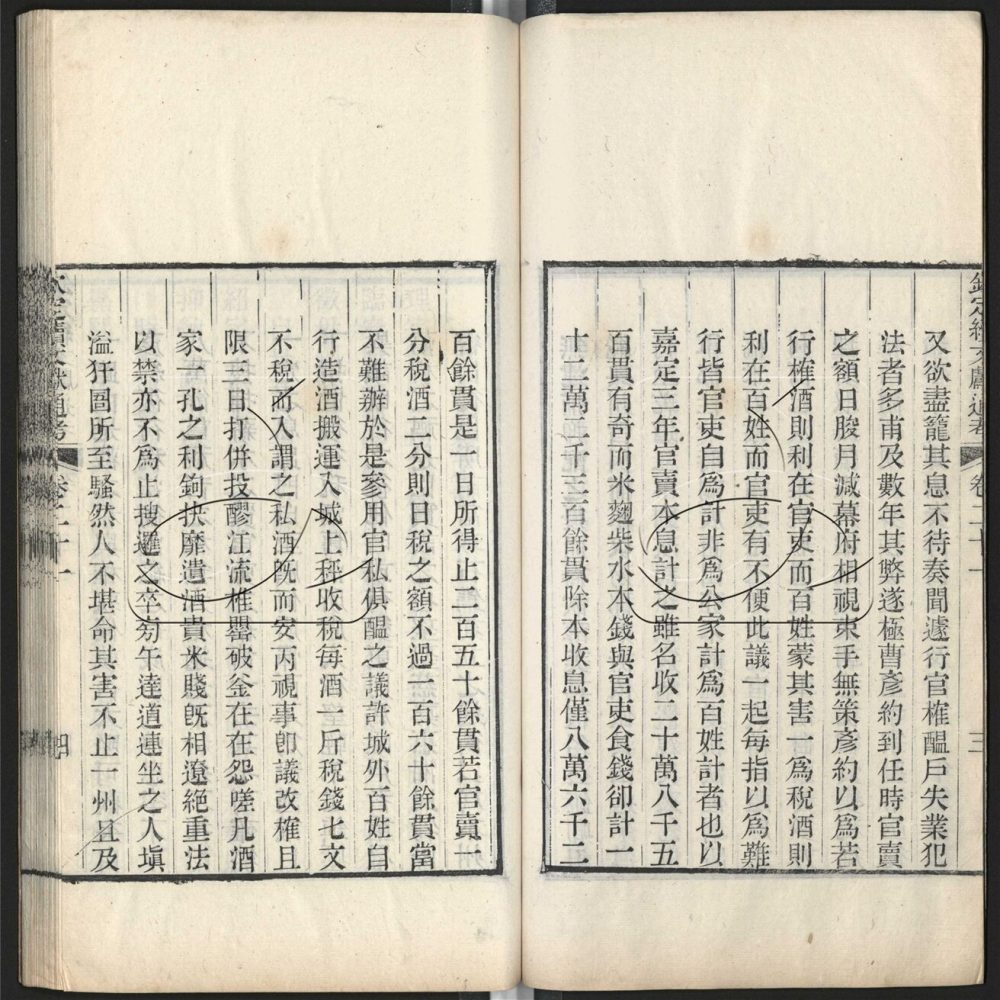 欽定續文獻通考 卷二十一 三
又欲盡籠其息不待奏聞遽行官榷醖戶失業犯
法者多甫及數年其弊遂極曹彥約到任時官賣
之額日朘月減幕府相視束手無策彥約以爲若
行榷酒則利在官吏而百姓蒙其害一爲稅酒則
利在百姓而官吏有不便此議一起每指以爲難
行皆官吏自爲計非爲公家計爲百姓計者也以
嘉定三年官賣本息計之雖名收二十萬八千五
百貫有奇而米麴柴水本錢與官吏食錢卻計一
十二萬二千三百餘貫除本收息僅八萬六千二
百餘貫是一日所得止二百五十餘貫若官賣一
分稅酒二分則日稅之額不過一百六十餘貫當
不難辦於是參用官私俱醖之議許城外百姓自
行造酒搬運入城上秤收稅每酒一斤稅錢七文
不稅而入謂之私酒旣而安丙視事卽議改榷且
限三日打併投醪江流椎罌破釜在在怨嗟凡酒
家一孔之利鉤抉靡遺酒貴米賤旣相遼絕重法
以禁亦不爲止搜邏之卒旁午逵道連坐之人塡
溢犴圄所至騷然人不堪命其害不止一州且及
欽定續文獻通考 卷二十一 四